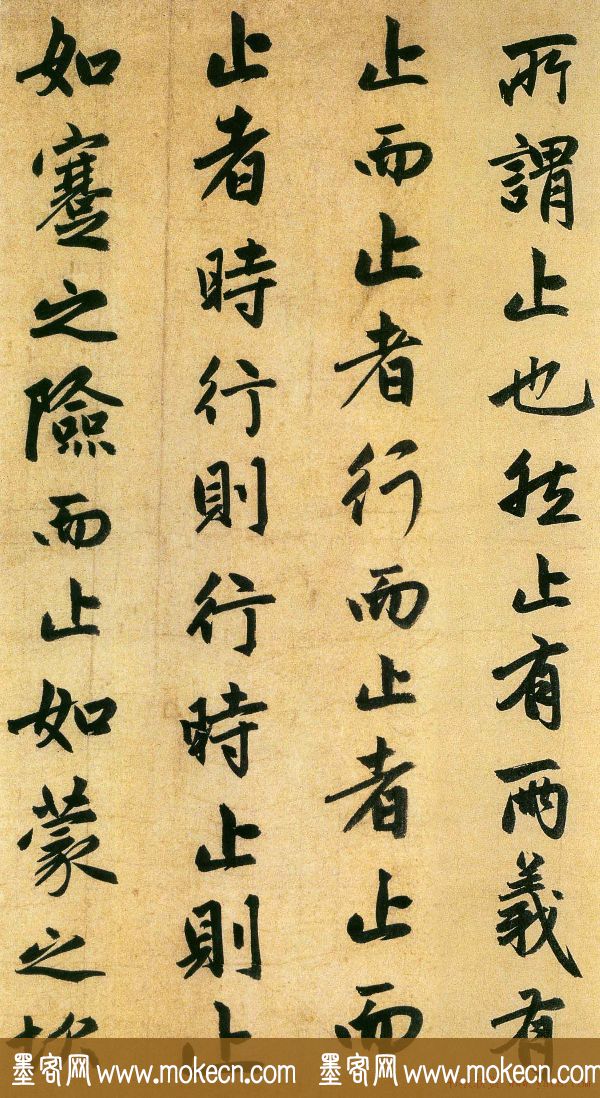 所謂止也然止有兩義有
止而止者行而止者止而
止者時行則行時止則止
如蹇之險而止如蒙之
墨客网 www.mokecn.com 墨客网 www.mokecn.com